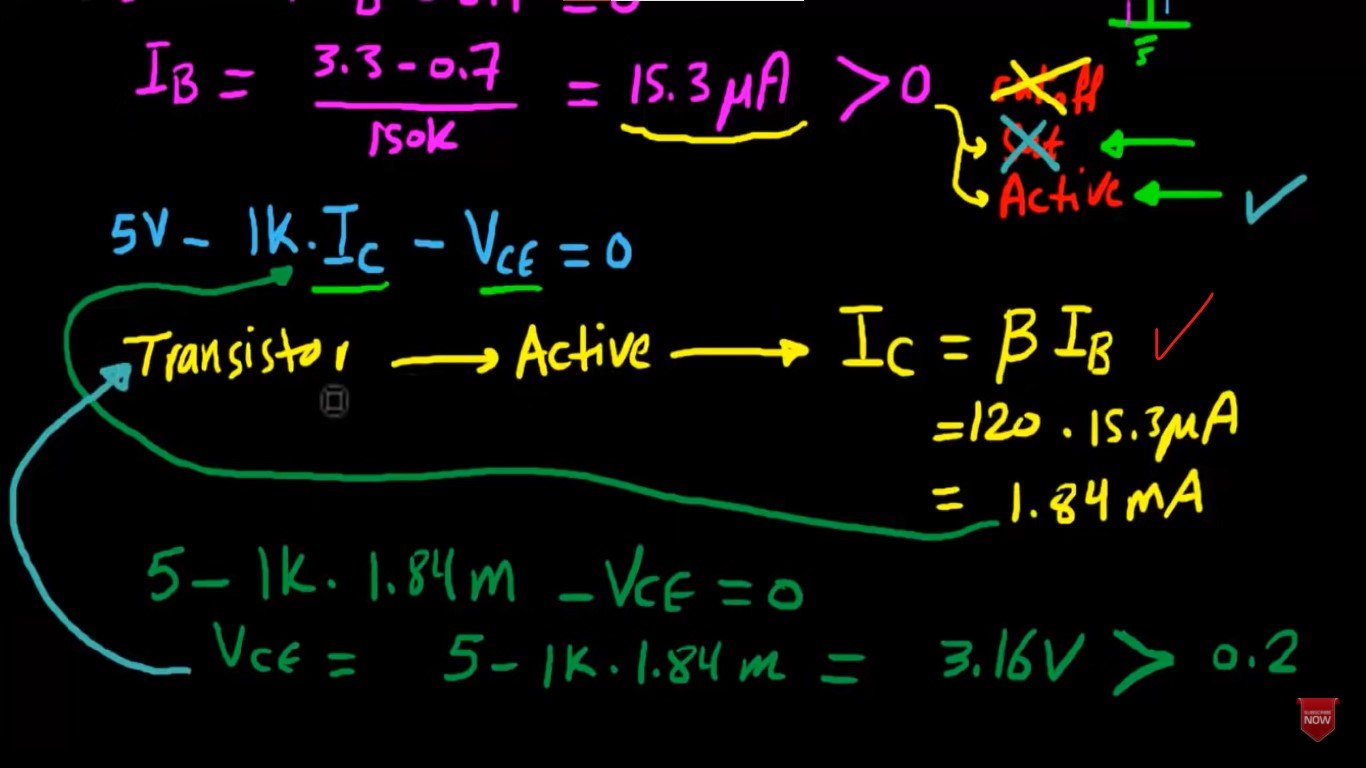 = 0
I_B = (3.3 - 0.7) / 150K = 15.3 μA > 0
cutoff
Sat
Active
5V - 1K · I_C - V_CE = 0
Transistor → Active → I_C = β I_B
= 120 · 15.3 μA
= 1.84 mA
5 - 1K · 1.84 m - V_CE = 0
V_CE = 5 - 1K · 1.84 m = 3.16V > 0.2
SUBSCRIBE
NOW